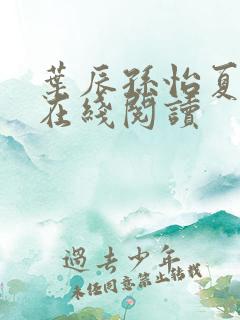 葉辰孫怡夏
在綫閱讀
過去少年
未經同意禁止轉載